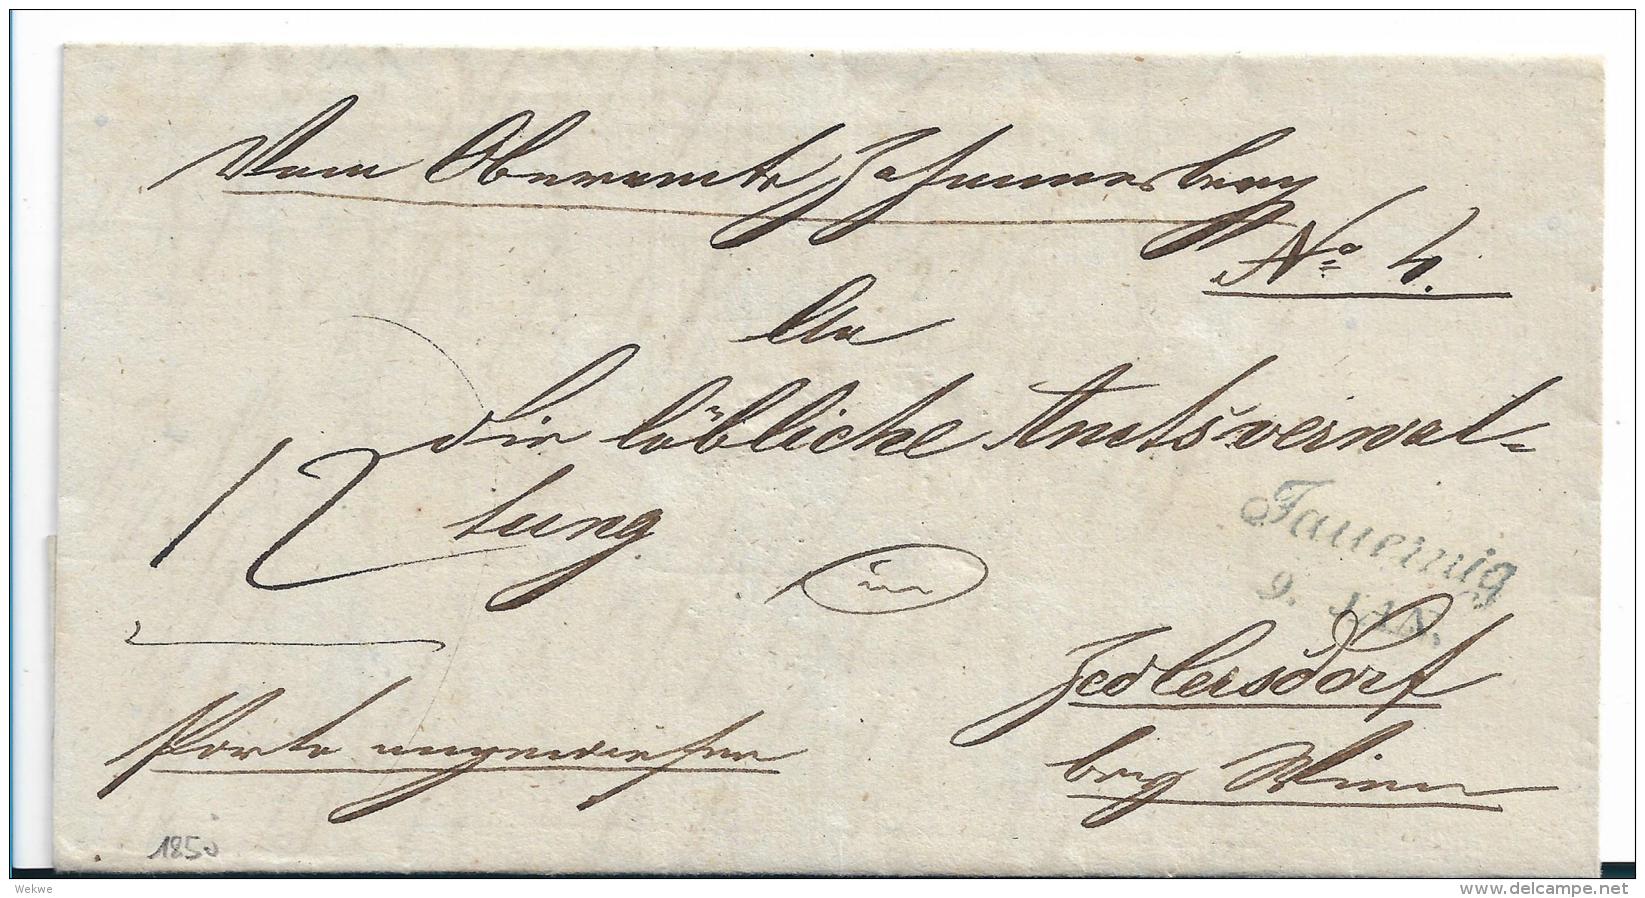 Vom Oberamte Johannesberg
No 4.
An
die löbliche Amtsverwal=
12 tung
in
Jauernig
9. JAN.
Jedlersdorf
bey Wien
Porto angewiesen
1850
Wekwe
www.delcampe.net